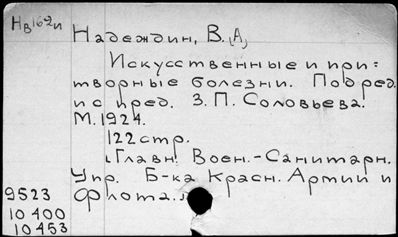 Нв162и
Надеждин, В. (А)
Искусственные и при=
творные болезни. Под ред.
и с пред. З. П. Соловьева.
М. 1924.
122 стр.
(Главн. Воен.-Санитарн.
Упр. Б-ка Красн. Армии и
9523 Флота.)
10 400
10 453